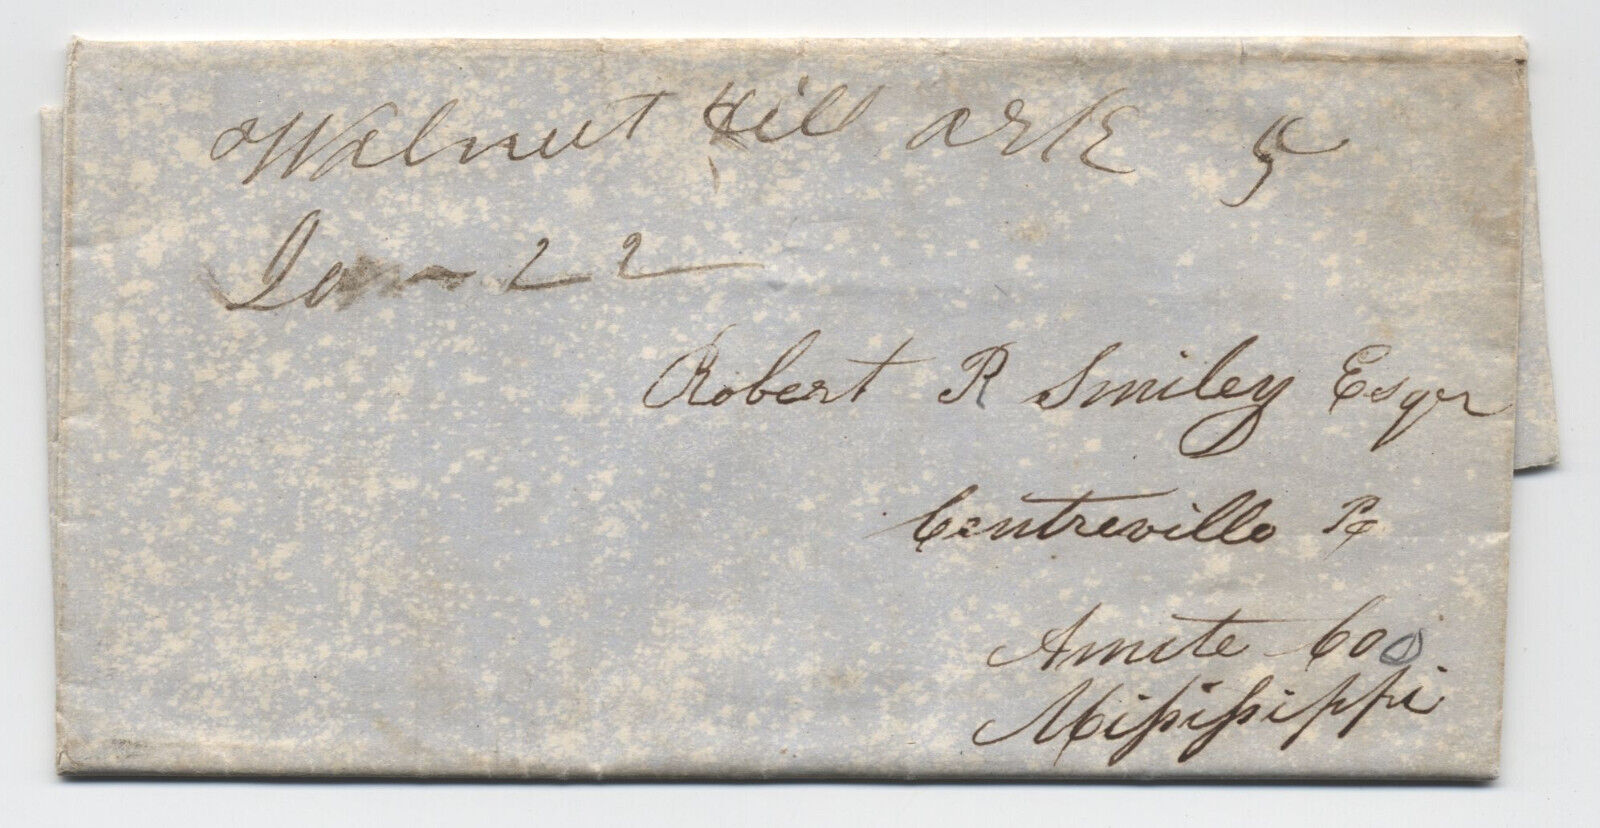 Walnut Hill Ark 5
Jan 22
Robert R Smiley Esqr
Centreville Po
Amite Co
Missisippi